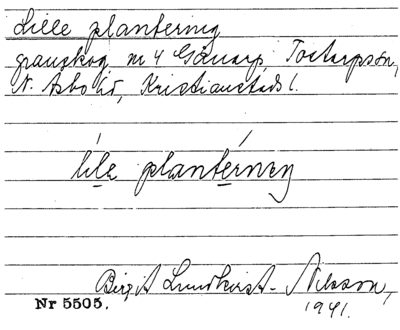 Lille plantering
granskog n 4 Gånarp, Tostarpssn,
N. Åsbo hd, Kristianstads l.
lı̣lẹ plantẹ́rneŋ
Birgit Lundkvist-Nilsson,
1941.
Nr 5505.